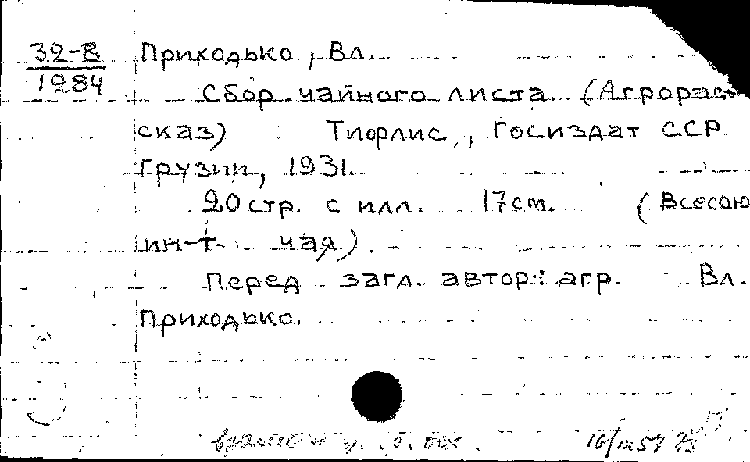 32-В Приходько, Вл.
1984
Сбор чайного листа (Агрорас-
сказ) Тифлис, Госиздат ССР
Грузии, 1931.
20 стр. с илл. 17 см. (Всесою
ин-т чая).
Перед загл. автор: агр. Вл.
Приходько.